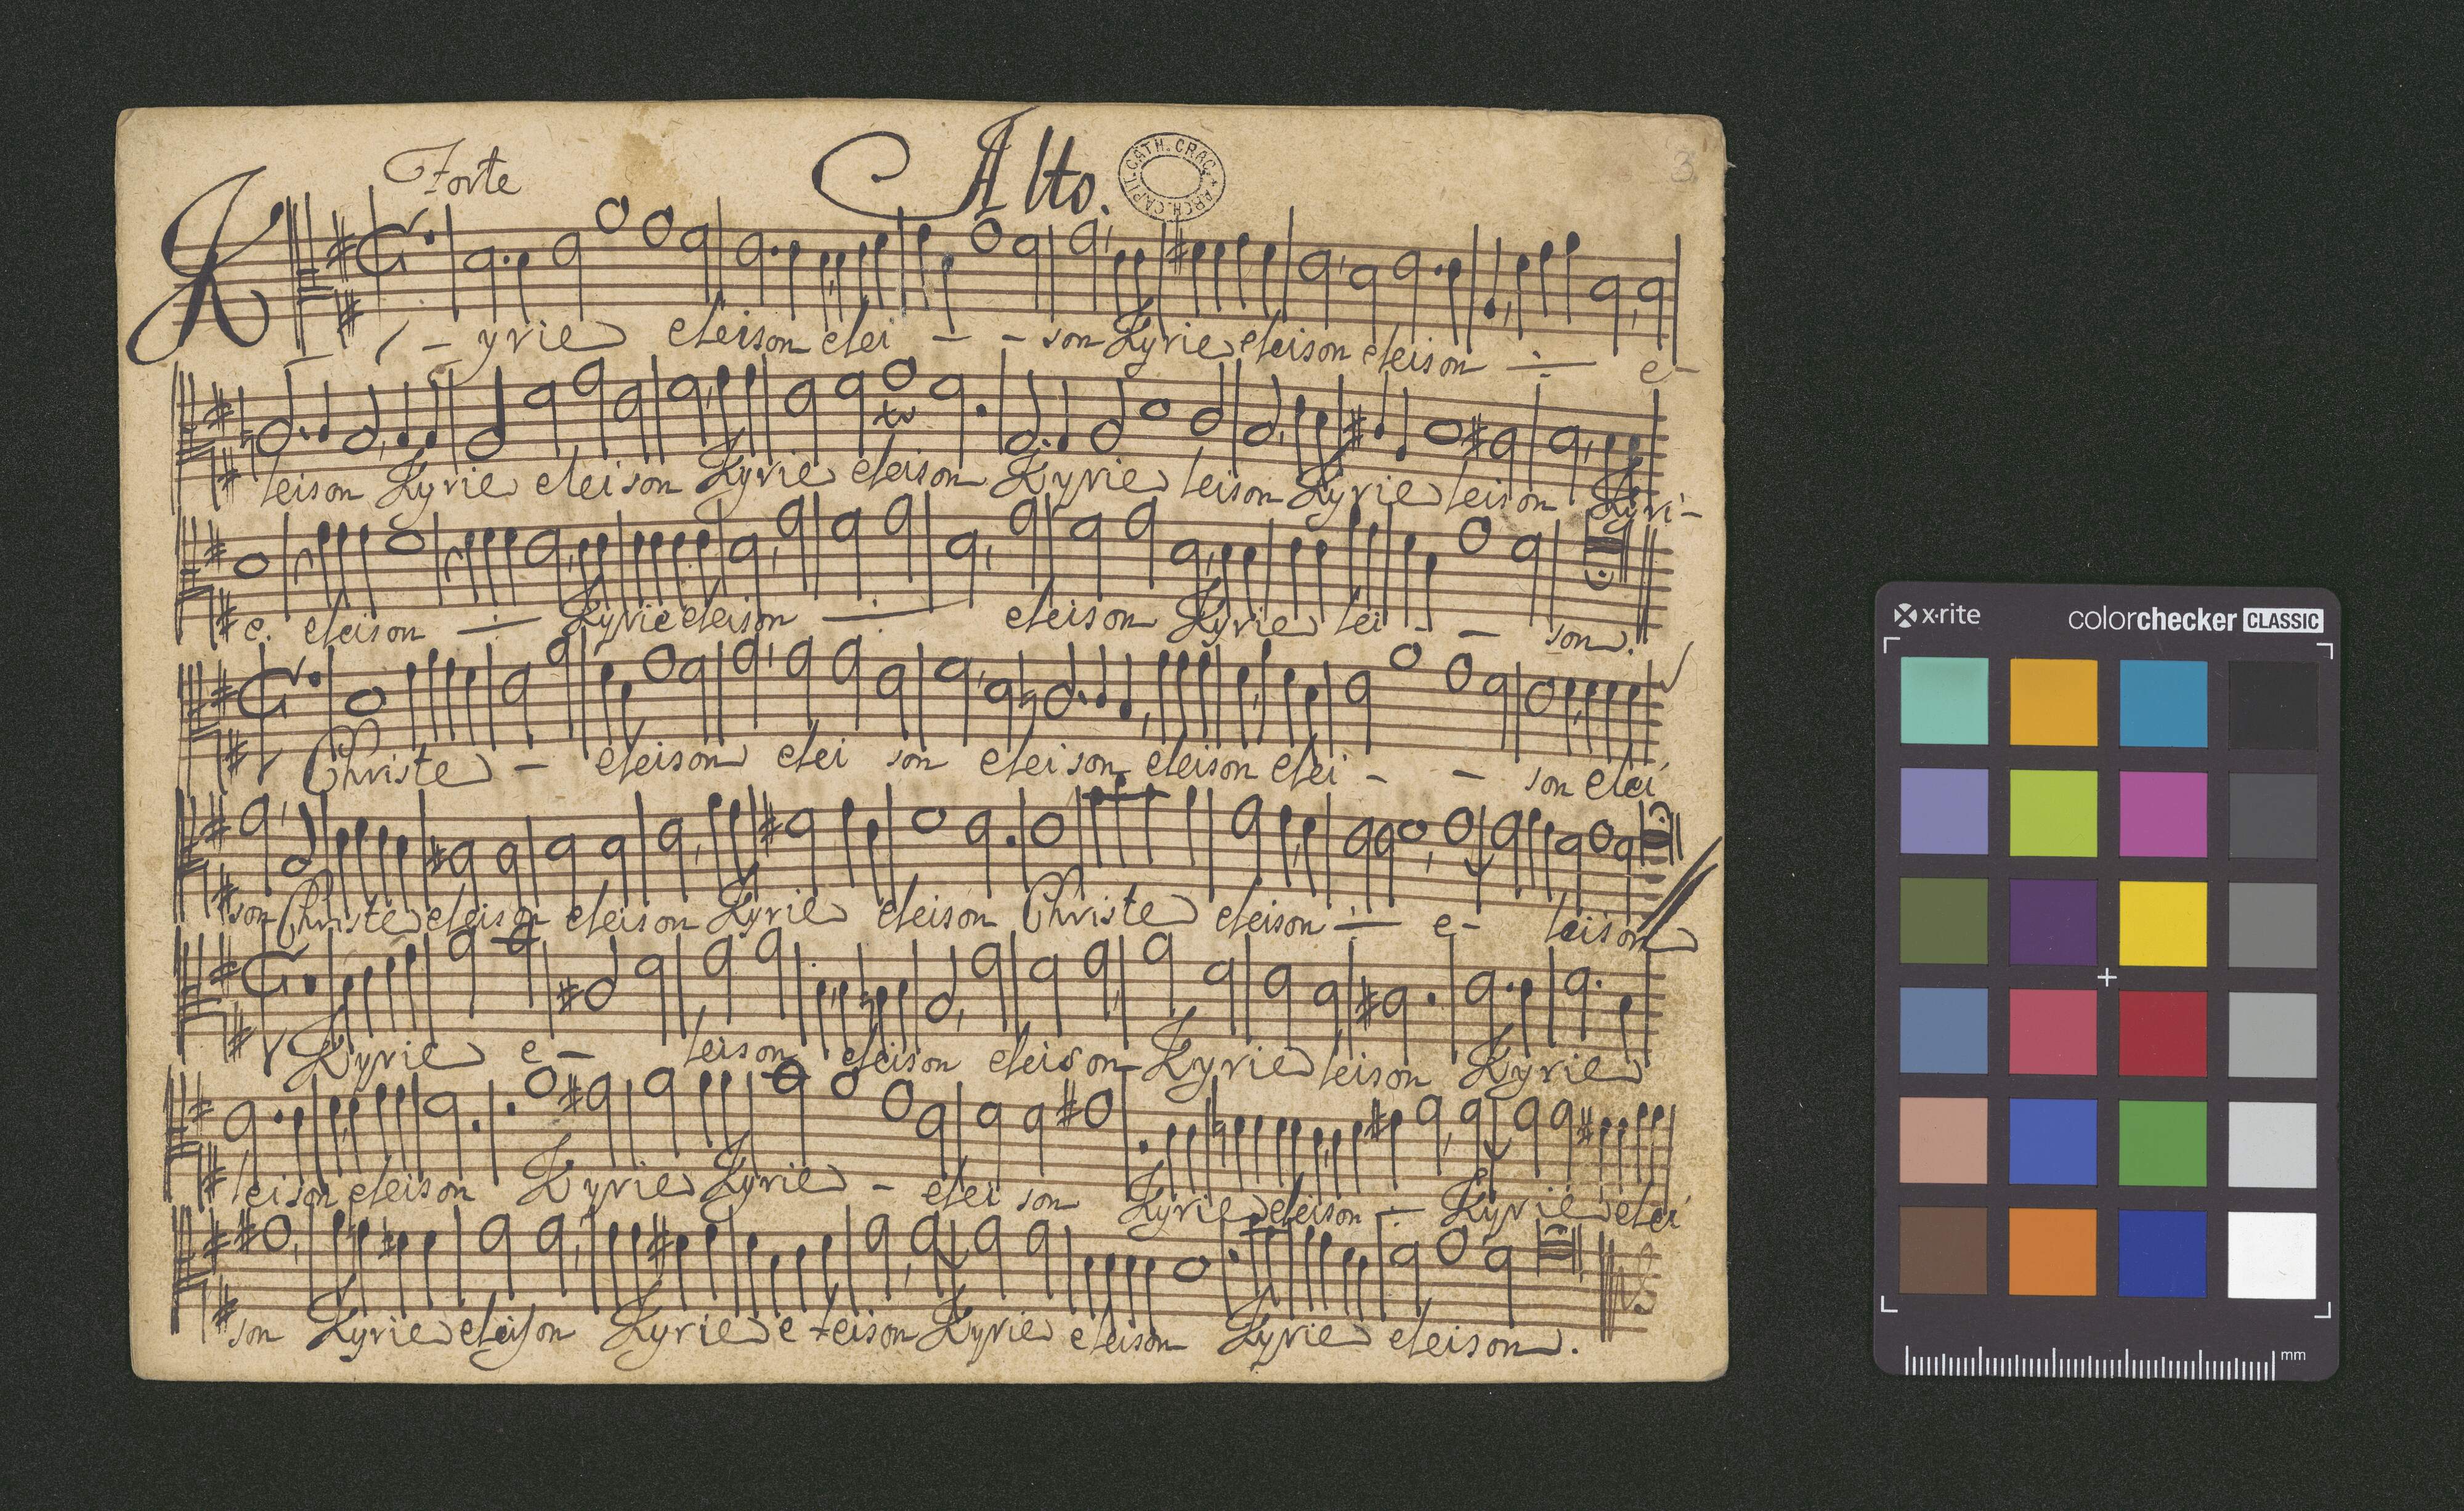 Forte Alto. 3.
ARCH. CAPIT. CATH. CRAC.
K - yrie eleison elei - - son Kyrie eleison eleison ÷ e-
leison Kyrie eleison Kyrie eleison Kyrie leison Kyrie leison Kyri-
e. eleison ÷ Kyrie eleison ÷ eleison Kyrie lei - - son.
Christe - eleison elei son eleison eleison elei - - son elei
son Christe eleison eleison Kyrie eleison Christe eleison ÷ e- leison
Kyrie e - leison eleison eleison Kyrie leison Kyrie
leison eleison Kyrie Kyrie - elei son Kyrie eleison ÷ Kyrie elei
son Kyrie eleison Kyrie e-leison Kyrie eleison Kyrie eleison.
x·rite colorchecker CLASSIC
mm